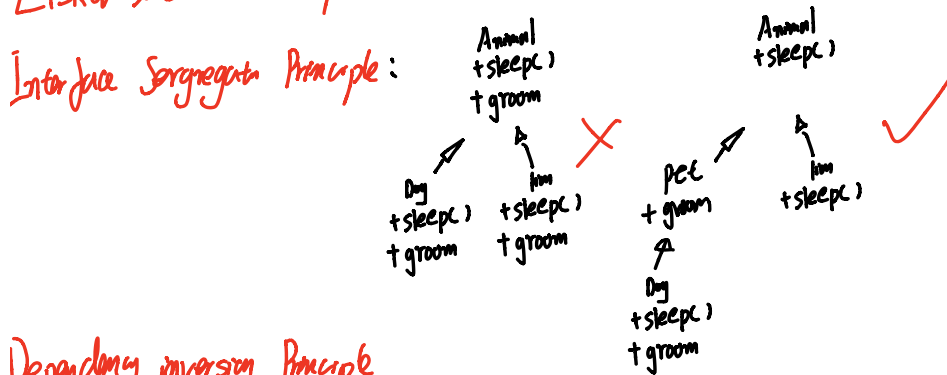 Interface Sergregata Principle:
Animal
+sleep()
+groom
Dog
+sleep()
+groom
lion
+sleep()
+groom
Animal
+sleep()
Pet
+groom
lion
+sleep()
Dog
+sleep()
+groom
Dependency inversion Principle